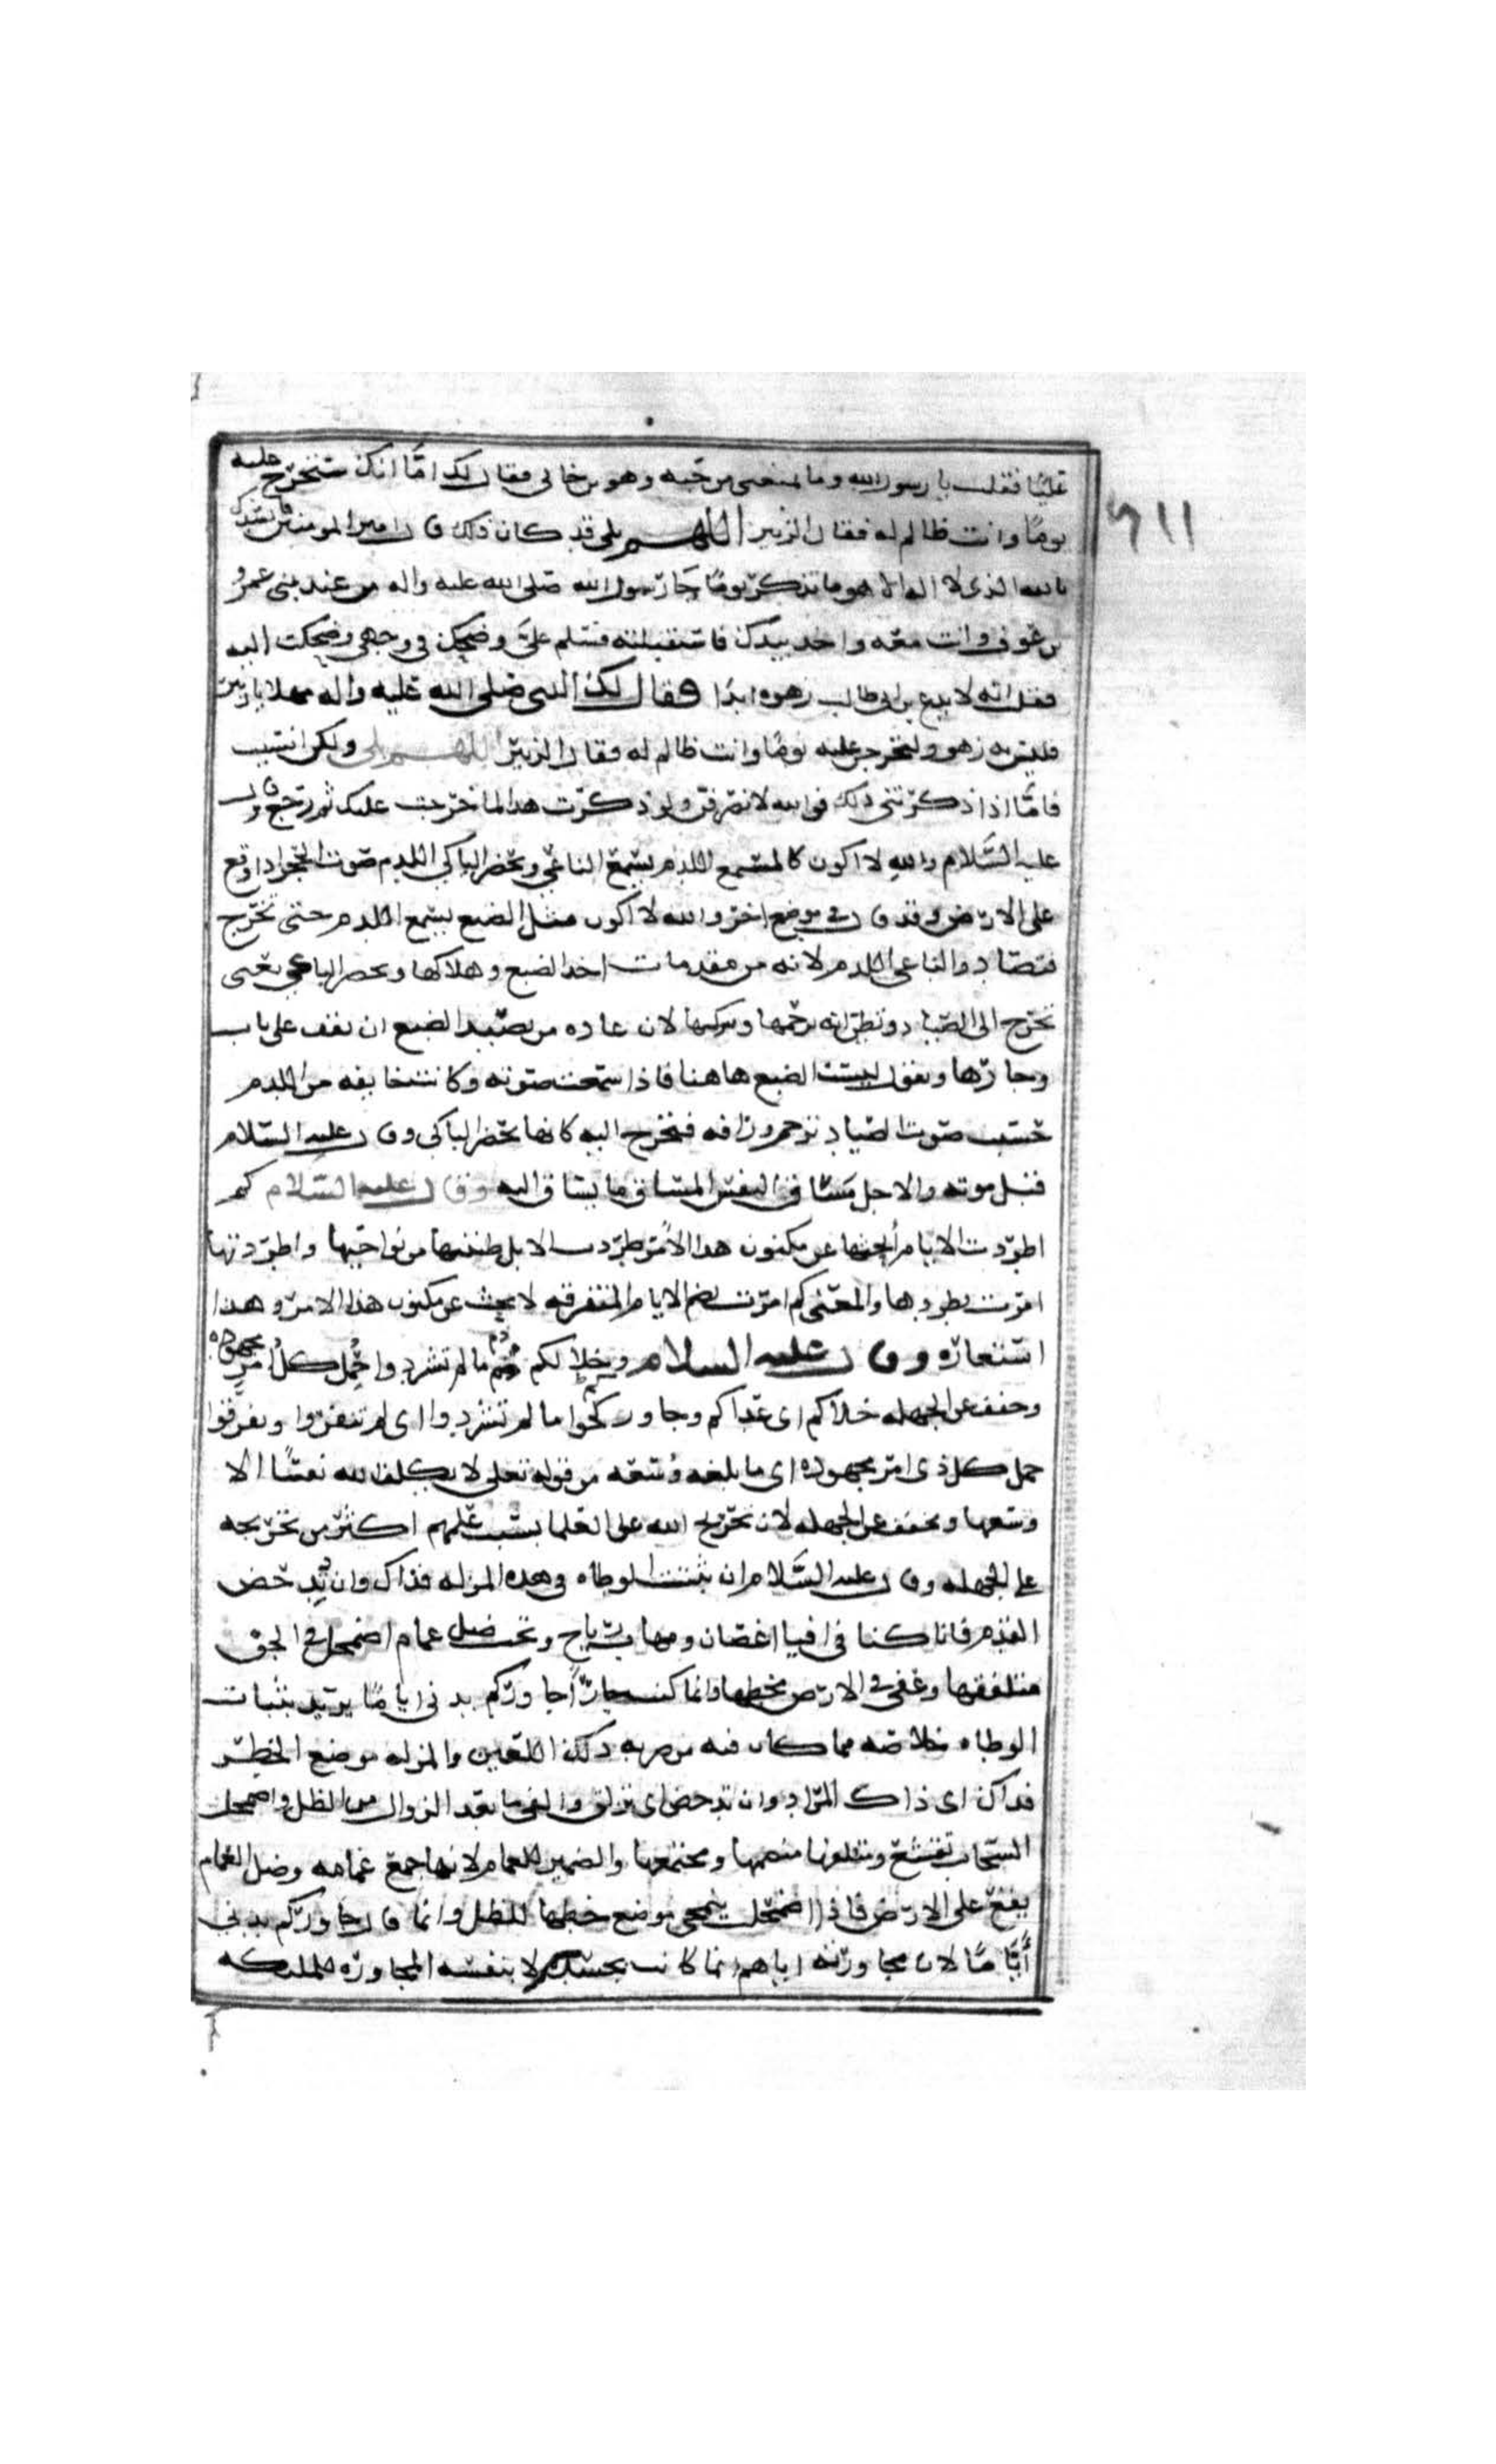 عليًا فقلت يا رسول الله وما يمنعني من حبه وهو بن خالي فقال لك امّا انك ستخرج عليه
يومًا وانت ظالم له فقال الزبير اللهم بلى قد كان ذلك قال امير المومنين فانشدك
بالله الذي لا اله الا هو ما تذكر يومًا جا رسول الله صلى الله عليه واله من عند بني عمرو
بن عوف وانت معه واخد بيدك فاستقبلته فسلم عليّ وضحك في وجهي وضحكت اليه
فقلت انه لا يدع بن ابي طالب زهوه ابدًا فقال لك النبي صلى الله عليه واله مهلا يا زبير
فليس به زهو ولتخرجن عليه يومًا وانت ظالم له فقال الزبير اللهم بلى ولكن انسيت
فامّا اذا ذكرتني ذلك فوالله لانصرفن ولو ذكرت هذا لما خرجت عليك ثم رجع وقال
عليه السَّلام والله لا اكون كالمستمع اللدم يسمع الناعي ويحضر الباكي اللدم صوت الحجر اذا وقع
على الارض وقد قال في موضع اخر والله لا اكون مثل الضبع يسمع اللدم حتى تخرج
فتصاد والناعي اللدم لانه من مقدمات اخد الضبع وهلاكها ويحضر الباكي يعني
تخرج الى الصياد وتظن انه يرحمها لان عاده من يصيد الضبع ان يقف على باب
وجارها ويقول ليست الضبع هاهنا فاذا سمعت صوته وكانت خايفه من اللدم
حسبت صوت الصياد ترحم ورافه فتخرج اليه كانها تحضر الباكي وقال عليه السّلام
قبل موته والاجل مساق النفس المساق ما يساق اليه وقال عليه السّلام كم
اطردت الايام أبحثها عن مكنون هذا الأمر طردت الابل من نواحيها واطردتها
امرت بطردها والمعنى كم امرت بضم الايام المتفرقه لابحث عن مكنون هذا الامر وهذا
استعاره وقال عليه السلام وخلاكم ذم ما لم تشردوا حمل كل امرٍ مجهوده
وخفف عن الجهله خلاكم اي عداكم وجاوركم ما لم تشردوا اي لم تنفروا وتفرقوا
حمل كل ذي امر مجهوده اي ما بلغه وسعه من قوله تعلى لا يكلف الله نفسًا الا
وسعها وتخفف عن الجهله لان تحريج الله على العلما بسبب علمهم اكثر من تحريجه
على الجهله وقال عليه السَّلام ان تثبت الوطاه في هذه المزله فذاك وان تدحض
القدم فانا كنا في افيا اغصان ومهاب رياح وتحت ضل غمام اضمحل في الجو
متلفقها وعفى في الارض مخطها وانما كنت جارًا جاوركم بدني ايامًا يريد بثبات
الوطاه خلاصه مما كان فيه من ضربه ذلك اللعين والمزله موضع الخطر
فذاك اي ذاك المراد وان تدحض اي تزلق والفي ما بعد الزوال من الظل واضمحل
السّحاب تقشع ومتلفقها منضمها ومجتمعها والضمير للغمام لانها جمع غمامه وضل الغمام
يقع على الارض فاذا اضمحلت ينمحي موضع خطها للظل وانما قال جاوركم بدني
أيّامًا لان مجاورته اياهم انما كانت بجسده لا بنفسه المجاوره للملايكه